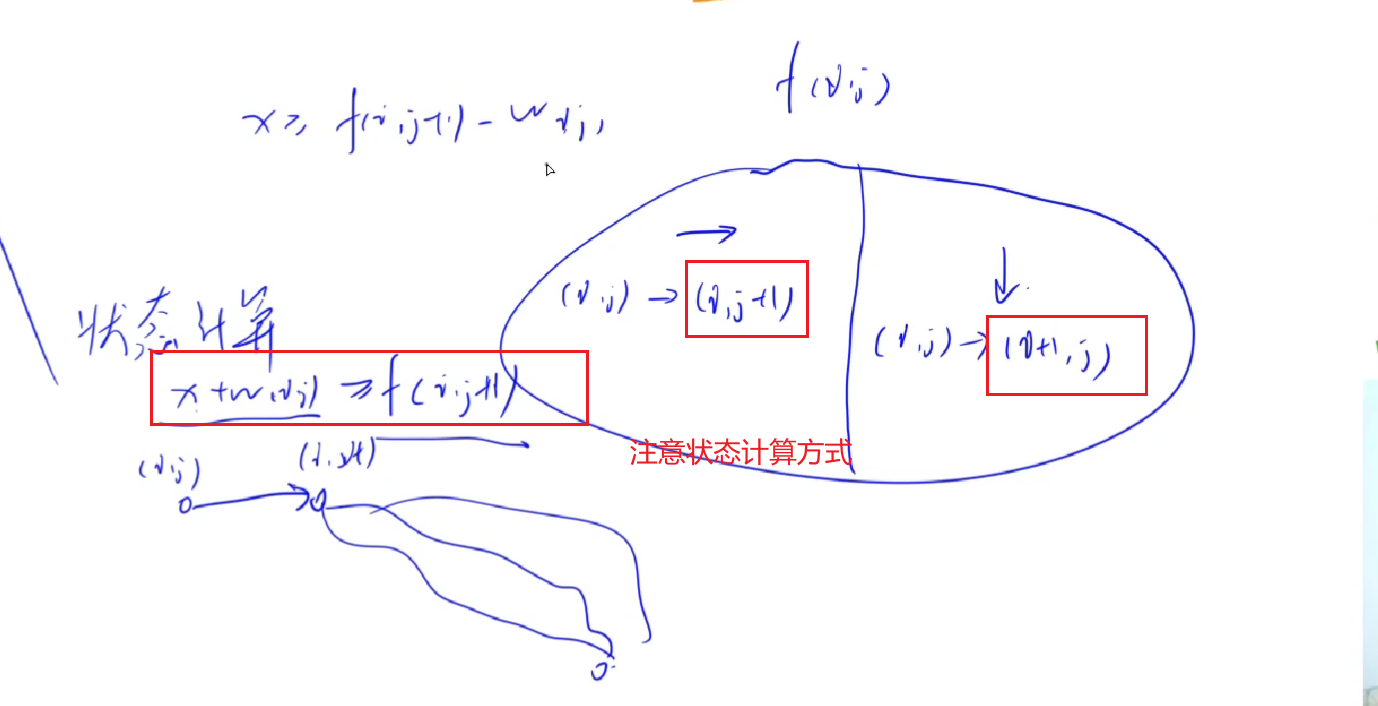 f(i,j)
x ≥ f(i,j+1) - w i j,
(i,j) → (i,j+1)
(i,j) → (i+1,j)
状态计算
x + w(i,j) ≥ f(i,j+1)
注意状态计算方式
(i,j)